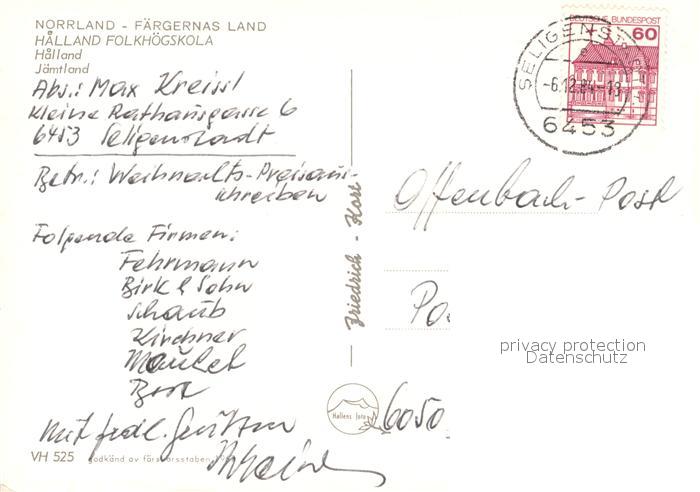 NORRLAND - FÄRGERNAS LAND
HÅLLAND FOLKHÖGSKOLA
Hålland
Jämtland
Abs.: Max Kreissl
Kleine Rathausgasse 6
6453 Seligenstadt
Betr.: Weihnachts-Preisaus-
schreiben
Folgende Firmen:
Fehrmann
Birk & Sohn
Schaub
Kirchner
Mit frdl. Grüssen
VH 525
Godkänd av försvarsstaben
Friedrich - Karl
Hallens foto
DEUTSCHE BUNDESPOST
60
SELIGENST
-6.12.84-18
6453
Offenbach-Post
Po
6050
privacy protection
Datenschutz